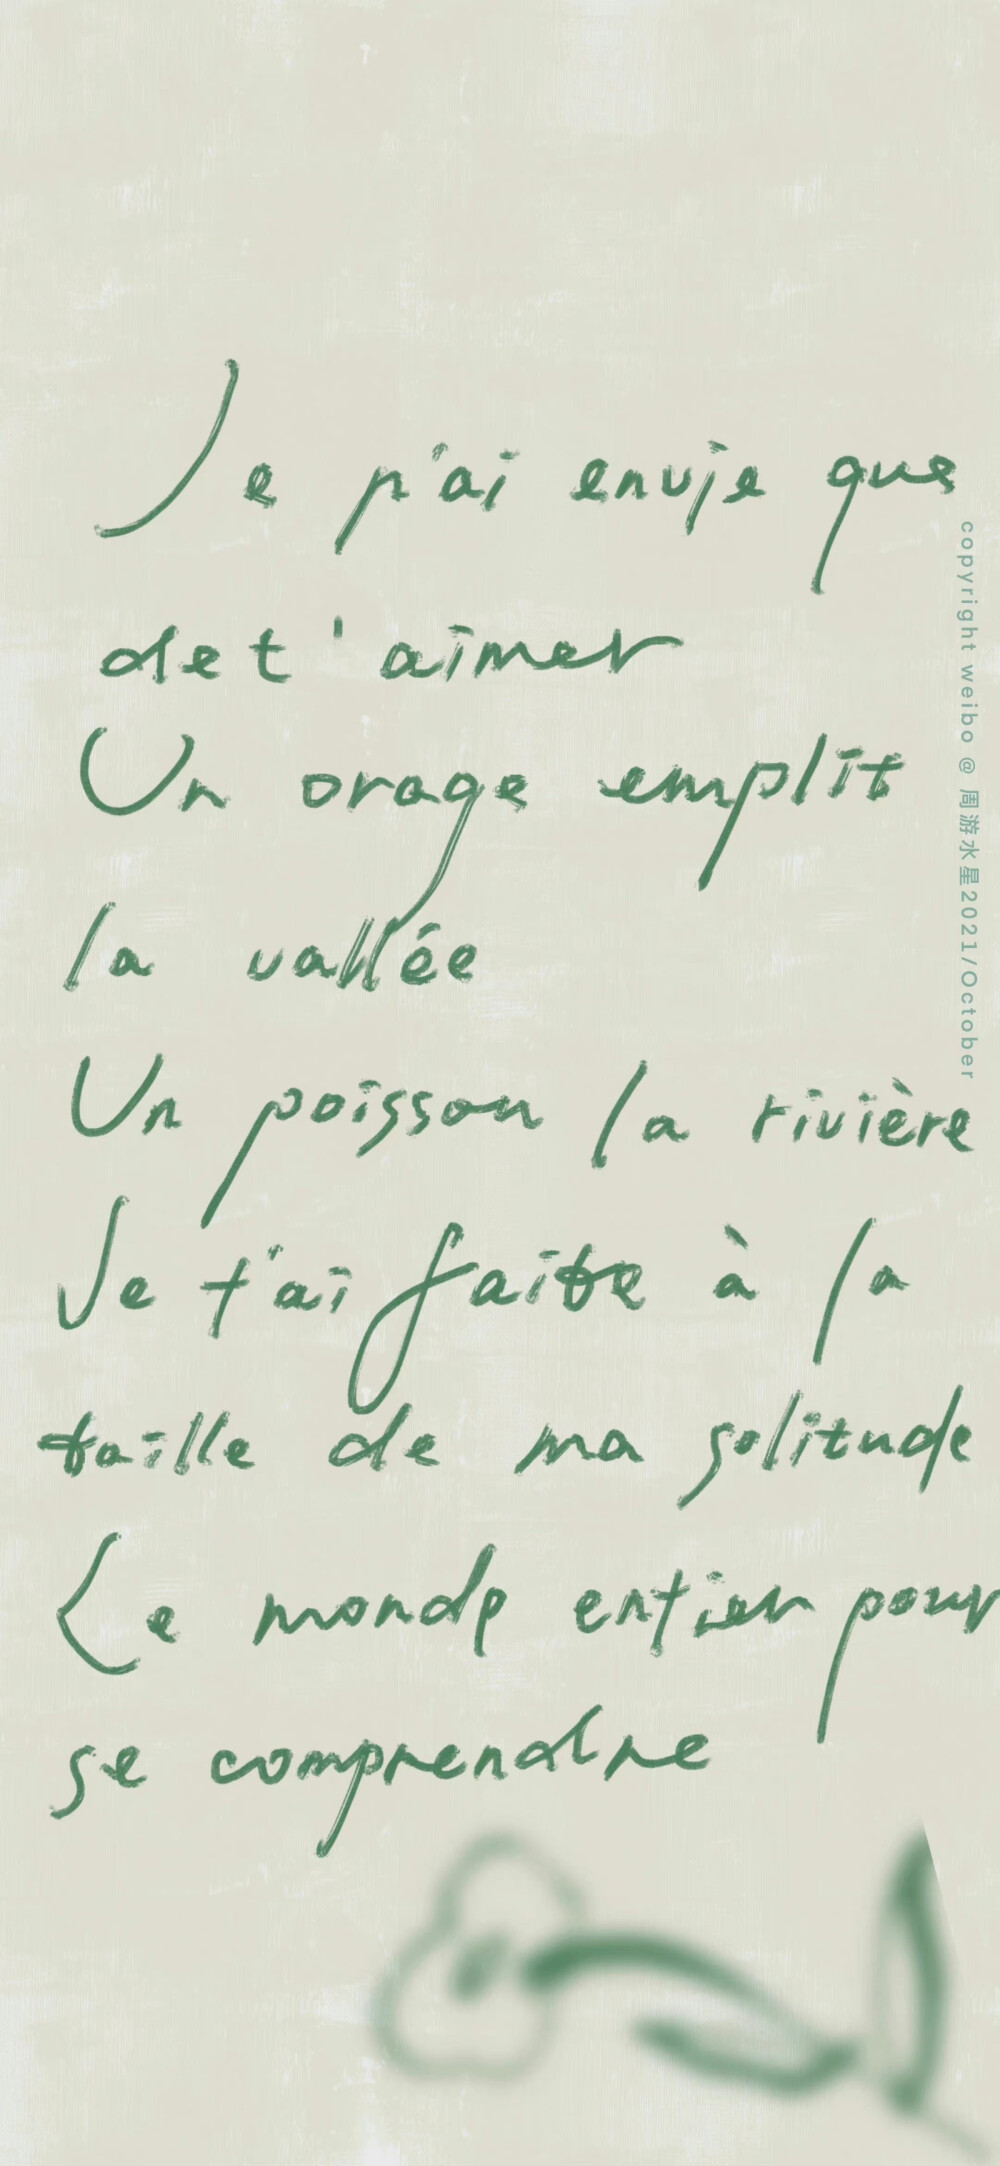 Je n'ai envie que
de t'aimer
Un orage emplit
la vallée
Un poisson la rivière
Je t'ai faite à la
taille de ma solitude
Le monde entier pour
se comprendre
copyright weibo @ 周游水星2021/October